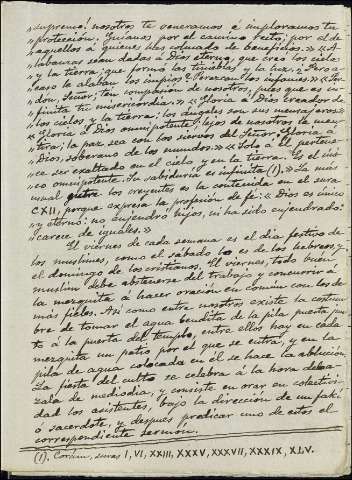 supremo! nosotros te veneramos é imploramos tu
protección. Guianos por el camino recto; por el de
aquellos á quienes has colmado de beneficios.» «A-
labanzas sean dadas á Dios eterno, que creó los cielos
y la tierra; que formó las tinieblas y la luz.
acaso le alaban los impíos? Perezcan los infames.» «Per-
dón, Señor; ten compasión de nosotros, pues que es in-
finita tu misericordia.» «Gloria á Dios creador de
los cielos y la tierra: los ángeles son sus mensajeros»
«Gloria á Dios omnipotente! lejos de nosotros la men-
tira; la paz sea con los siervos del Señor. Gloria á
Dios, soberano de los mundos.» «Solo á Él pertene-
ce ser exaltado en el cielo y en la tierra. Es el úni-
co omnipotente. Su sabiduría es infinita (1).» La más
usual entre los creyentes es la contenida en el sura
CXII, porque expresa la profesión de fé: «Dios es único
y eterno: no engendró hijos, ni ha sido engendrado:
carece de iguales.»
El viernes de cada semana es el día festivo de
los muslimes, como el sábado lo es de los hebreos, y
el domingo de los cristianos. El viernes, todo buen
muslim debe abstenerse del trabajo y concurrir á
la mezquita á hacer oración en común con los de-
más fieles. Así como entre nosotros existe la costum-
bre de tomar el agua bendita de la pila puesta jun-
to á la puerta del templo, entre ellos hay en cada
mezquita un patio por el que se entra, y en la
pila de agua colocada en él se hace la ablución.
La fiesta del culto se celebra á la hora de la a-
zala de mediodía, y consiste en orar en colectivi-
dad los asistentes, bajo la dirección de un fakí
ó sacerdote, y después predicar uno de estos el
correspondiente sermón.
(1). Corán, suras I, VI, XXIII, XXXV, XXXVII, XXXIX, XLV.